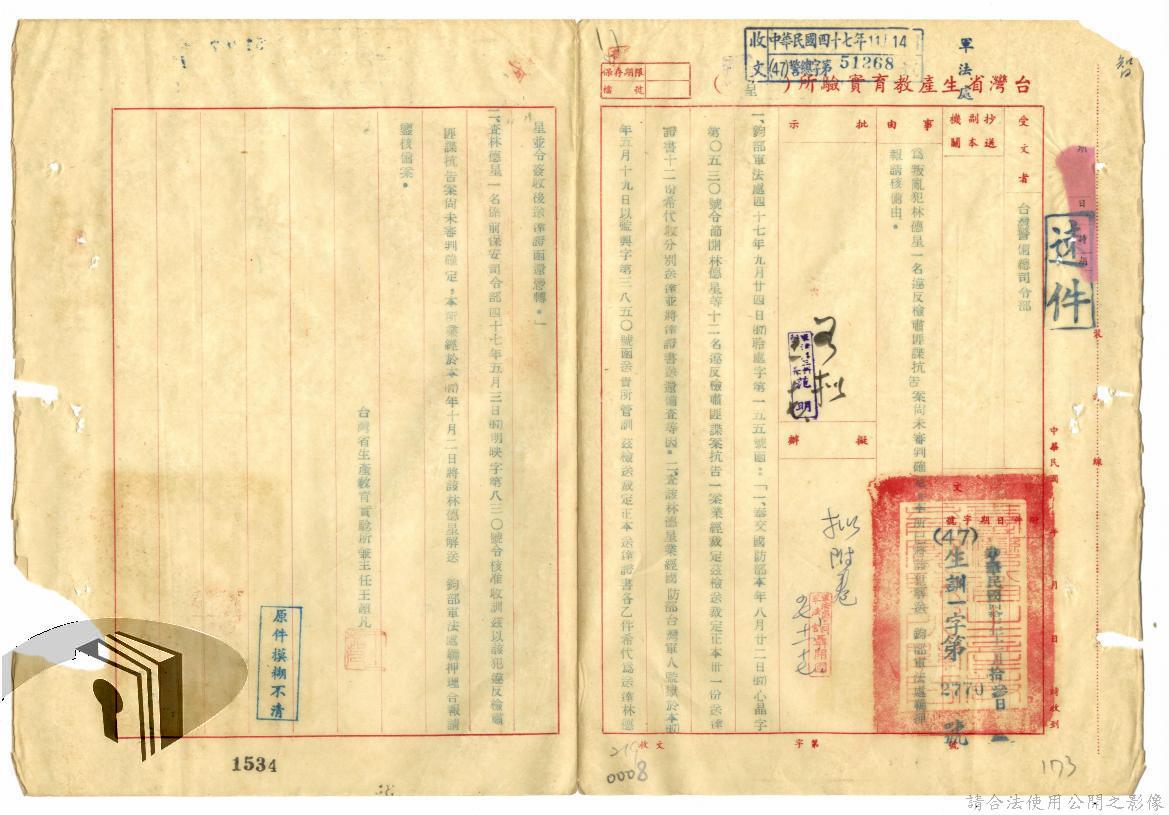 軍法處
收文
中華民國四十七年11月14
(47)警總字第51268
保存期限
檔號
台灣省生產教育實驗所( )呈
速件
受文者
台灣警備總司令部
抄送副本機關
事由
為叛亂犯林德星一名違反檢肅匪諜抗告案尚未審判確定本所已將該犯解送 鈞部軍法處羈押
報請核備由。
批示
擬辦
擬附卷
文
附件
日期
字號
中華民國四十七年十一月拾叁日
(47)生訓一字第2770號
中華民國 年 月 日 時收到
裝
線
一、鈞部軍法處四十七年九月廿四日(47)聆處字第一五五號函:「一、奉交國防部本年八月廿二日(47)心晶字
第〇五三〇號令節開林德星等十二名違反檢肅匪諜案抗告一案業經裁定茲檢送裁定正本卅一份送達
證書十二份希代收分別送達並將送達證書送還備查等因。二、查該林德星業經國防部台灣軍人監獄於本(47)
年五月十九日以監興字第三八五〇號函送貴所管訓 茲檢送裁定正本送達證書各乙件希代為送達林德
星並令簽收後送達證函還憑轉。」
二、查林德星一名係前保安司令部四十七年五月三日(47)明映字第八三〇號令核准收訓茲以該犯違反檢肅
匪諜抗告案尚未審判確定,本所業經於本(47)年十月二日將該林德星解送 鈞部軍法處羈押理合報請
鑒核備案。
台灣省生產教育實驗所兼主任王
原件模糊不清
收文 字第 號
219
0008
173
1534
請合法使用公開之影像